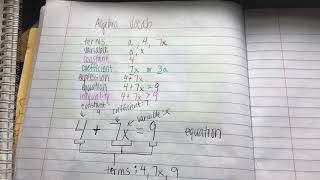 Algebra Vocab
terms a, 4, 7x
variable a, x
constant 4
coefficient 7x or 3a
expression 4+7x
equation 4+7x=9
inequality 4+7x>9
constant: 4 coefficient: 7
variable: x
4 + 7x = 9 equation
terms: 4, 7x, 9